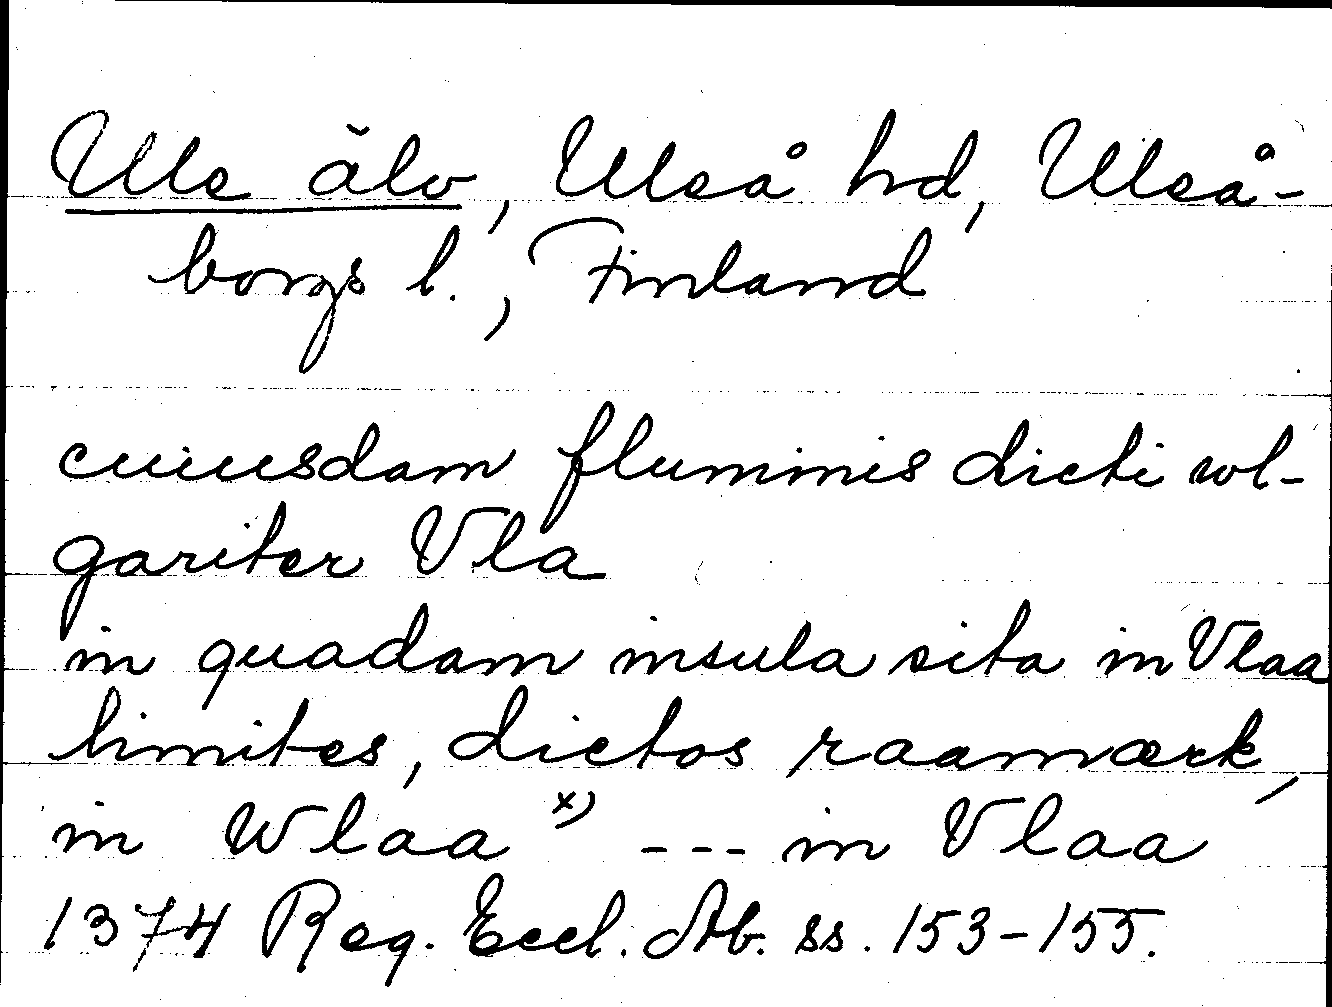 Ule älv, Uleå hd, Uleå-
borgs l., Finland
cuiusdam fluminis dicti wl-
gariter Vla
in quadam insula sita in Vlaa
limites, dictos raamærk,
in Wlaa x) --- in Vlaa
1374 Reg. Eccl. Ab. ss. 153-155.